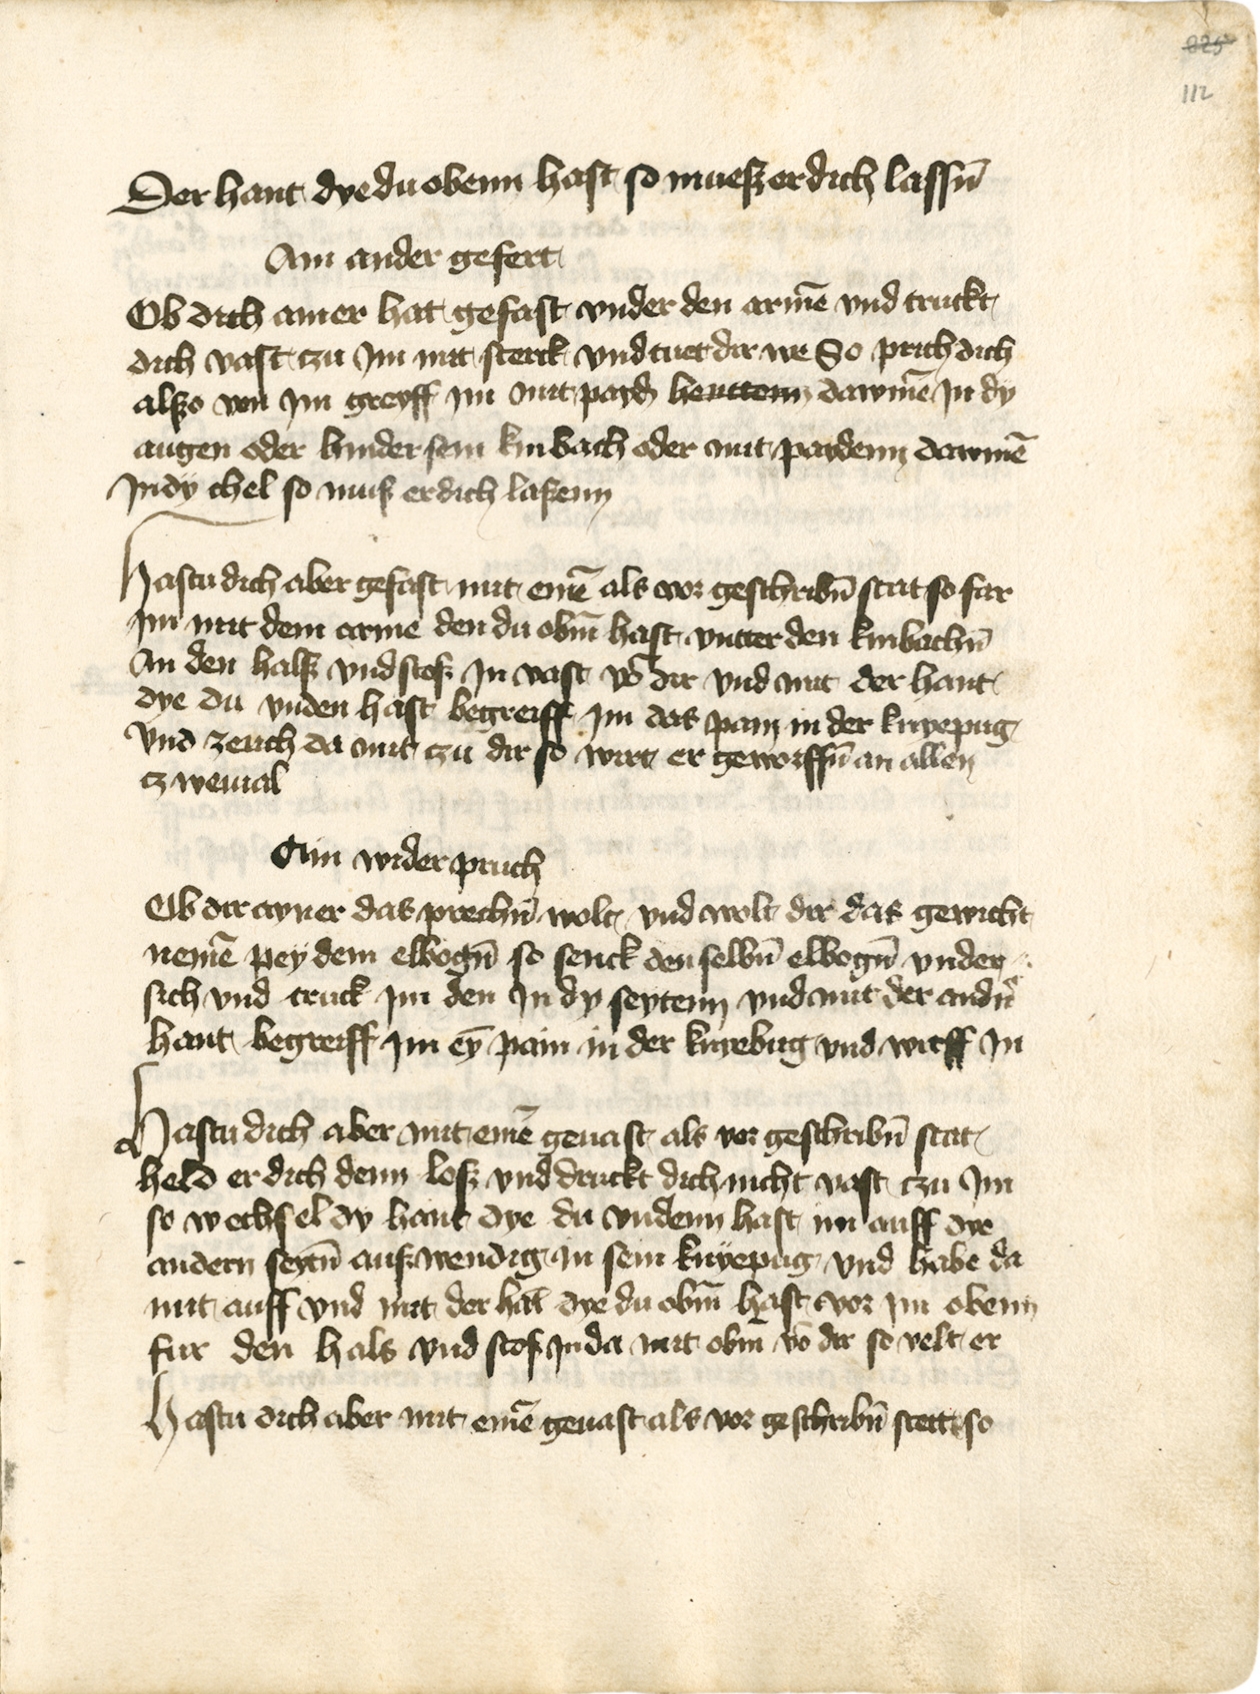 825
112
Der hant dye du obenn hast so muesz er dich lassn̄
Ain ander gefert
Ob dich ainer hat gefast vnder den armē vnd truckt
dich vast czu Im mit sterck vnd tuet dir we So prich dich
alszo von Im greyff im mit payd henttenn dawmē In dy
augen oder hinder sein kinbach oder mit paydenn dawmē
In dy chel so muß er dich laßenn
Hastu dich aber gefast mit einē als vor geschribn̄ stat so far
Im mit dem arme den du obnn̄ hast vntter den kinbachn̄
An den halß vnd stoß In vast vō dir vnd mit der hant
dye du vnden hast begreiff im das pain in der knyepug
Vnd zeuch da mit czu dir so wirt er geworffn̄ an allen
czweiual
Ain wider pruch
Ob dir ayner das prechn̄ wolt vnd wolt dir das gewicht
nemē pey dem elbogn̄ so senck den selbn̄ elbogn̄ vnder
sich vnd truck im den In dy seytenn vnd mit der andn̄
hant begreiff im eȳ pain in der knyebug vnd wirff In
Hastu dich aber mit einē geuast als vor geschribn̄ stat
held er dich denn losz vnd druckt dich nicht vast czu Im
so wechsel dy hant dye du vndenn hast im auff dye
andern seytn̄ außwendig in sein knÿepug vnd habe da
mit auff vnd mit der hāt dye du obnn̄ hast vor im obenn
fur den hals vnd stoß In da mit obnn̄ vō dir so velt er
Hastu dich aber mit einē geuast als vor geschribn̄ stett so